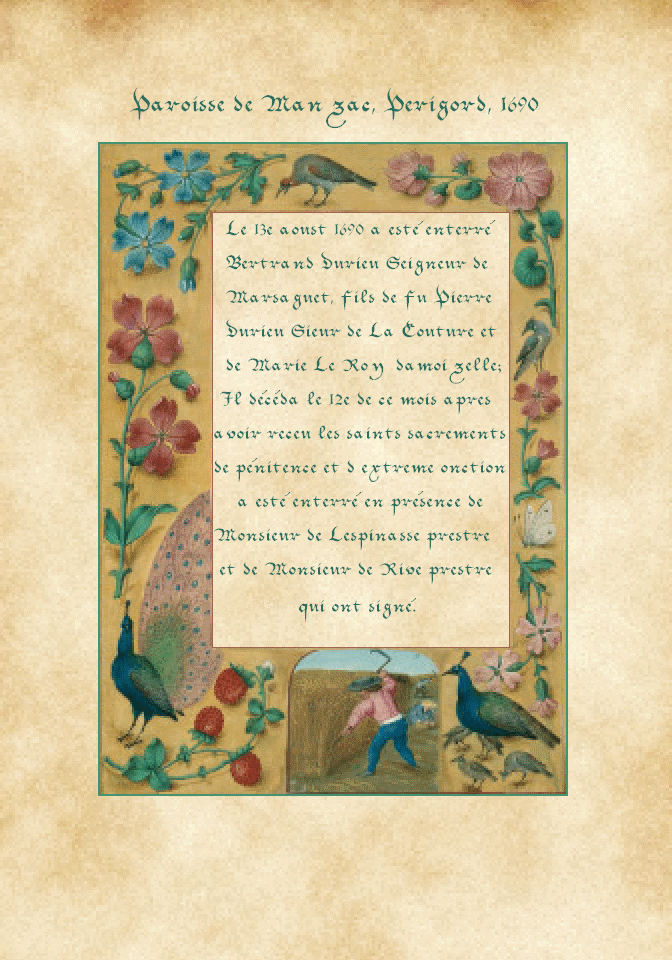 Paroisse de Manzac, Perigord, 1690
Le 13e aoust 1690 a esté enterré
Bertrand Durieu Seigneur de
Marsaguet, fils de fu Pierre
Durieu Sieur de La Couture et
de Marie Le Roy damoizelle;
Il décéda le 12e de ce mois apres
avoir receu les saints sacrements
de pénitence et d extreme onction
a esté enterré en présence de
Monsieur de Lespinasse prestre
et de Monsieur de Rive prestre
qui ont signé.